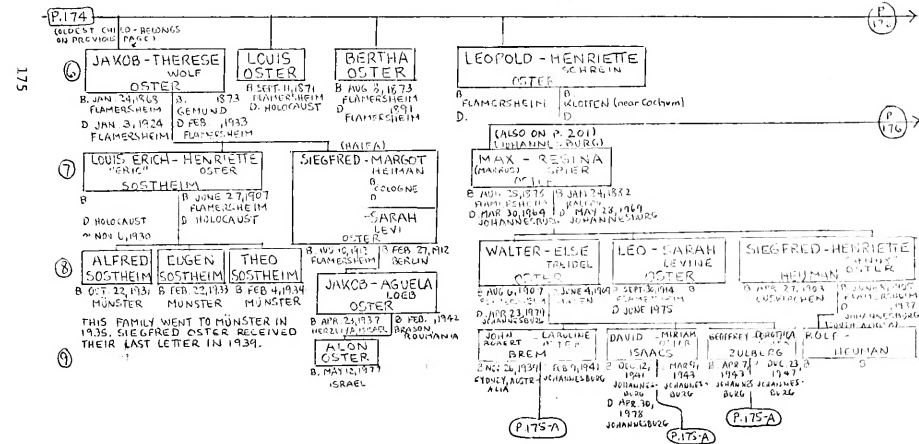 P.174
(OLDEST CHILD - BELONGS
ON PREVIOUS PAGE)
P
176
175
⑥
JAKOB - THERESE
WOLF
OSTER
B. JAN. 24, 1868
FLAMERSHEIM
D JAN 3, 1924
FLAMERSHEIM
B. 1873
GEMUND
D FEB , 1933
FLAMERSHEIM
LOUIS
OSTER
B SEPT. 11, 1871
FLAMERSHEIM
D. HOLOCAUST
BERTHA
OSTER
B AUG 8, 1873
FLAMERSHEIM
D 1891
FLAMERSHEIM
LEOPOLD - HENRIETTE
SCHREIN
OSTER
B
FLAMERSHEIM
D.
B
KLOTTEN (near Cochum)
D.
P
176
⑦
LOUIS ERICH - HENRIETTE
"ERIC" OSTER
SOSTHEIM
B
D HOLOCAUST
~ NOV 6, 1930
B JUNE 27, 1907
FLAMERSHEIM
D HOLOCAUST
(HAIFA)
SIEGFRED - MARGOT
HEIMAN
B
COLOGNE
D
- SARAH
LEVI
OSTER
B FEB. 27, 1912
FLAMERSHEIM
BERLIN
(ALSO ON P. 201)
(JOHANNESBURG)
MAX - REGINA
(MARKUS) SPIER
D MAR 30, 1964
JOHANNESBURG
B JAN 24, 1882
D MAY 28, 1969
JOHANNESBURG
⑧
ALFRED
SOSTHEIM
B OCT. 22, 1931
MÜNSTER
EUGEN
SOSTHEIM
B FEB. 22, 1933
MUNSTER
THEO
SOSTHEIM
B FEB 4, 1934
MÜNSTER
THIS FAMILY WENT TO MÜNSTER IN
1935. SIEGFRED OSTER RECEIVED
THEIR LAST LETTER IN 1939.
JAKOB - AGUELA
LOEB
OSTER
B APR. 23, 1937
HERZLIYA, ISRAEL
B FEB. , 1942
BRASON,
ROUMANIA
WALTER - ELSE
OSTER
B AUG 6, 1907
D APR 23, 1979
JOHANNESBURG
LEO - SARAH
LEVINE
OSTER
D JUNE 1975
SIEGFRED - HENRIETTE
HEUMAN
B APR. 27, 1903
JOHANNESBURG
⑨
ALON
OSTER
B. MAY 12, 1977
ISRAEL
JOHN
ROBERT - CAROLINE
OSTER
BREM
B NOV 26, 1939
SYDNEY, AUSTRALIA
FEB 9, 1941
JOHANNESBURG
DAVID - MIRIAM
OSTER
ISAACS
B DEC 12,
1941
JOHANNESBURG
D APR. 30,
1978
JOHANNESBURG
MAR 9,
1943
JOHANNESBURG
GEOFFREY - DOROTHEA
ZULBERG
B APR 7,
1943
JOHANNESBURG
DEC 23,
1947
JOHANNESBURG
ROLF -
HEUMAN
B
B
P.175-A
P.175-A
P.175-A